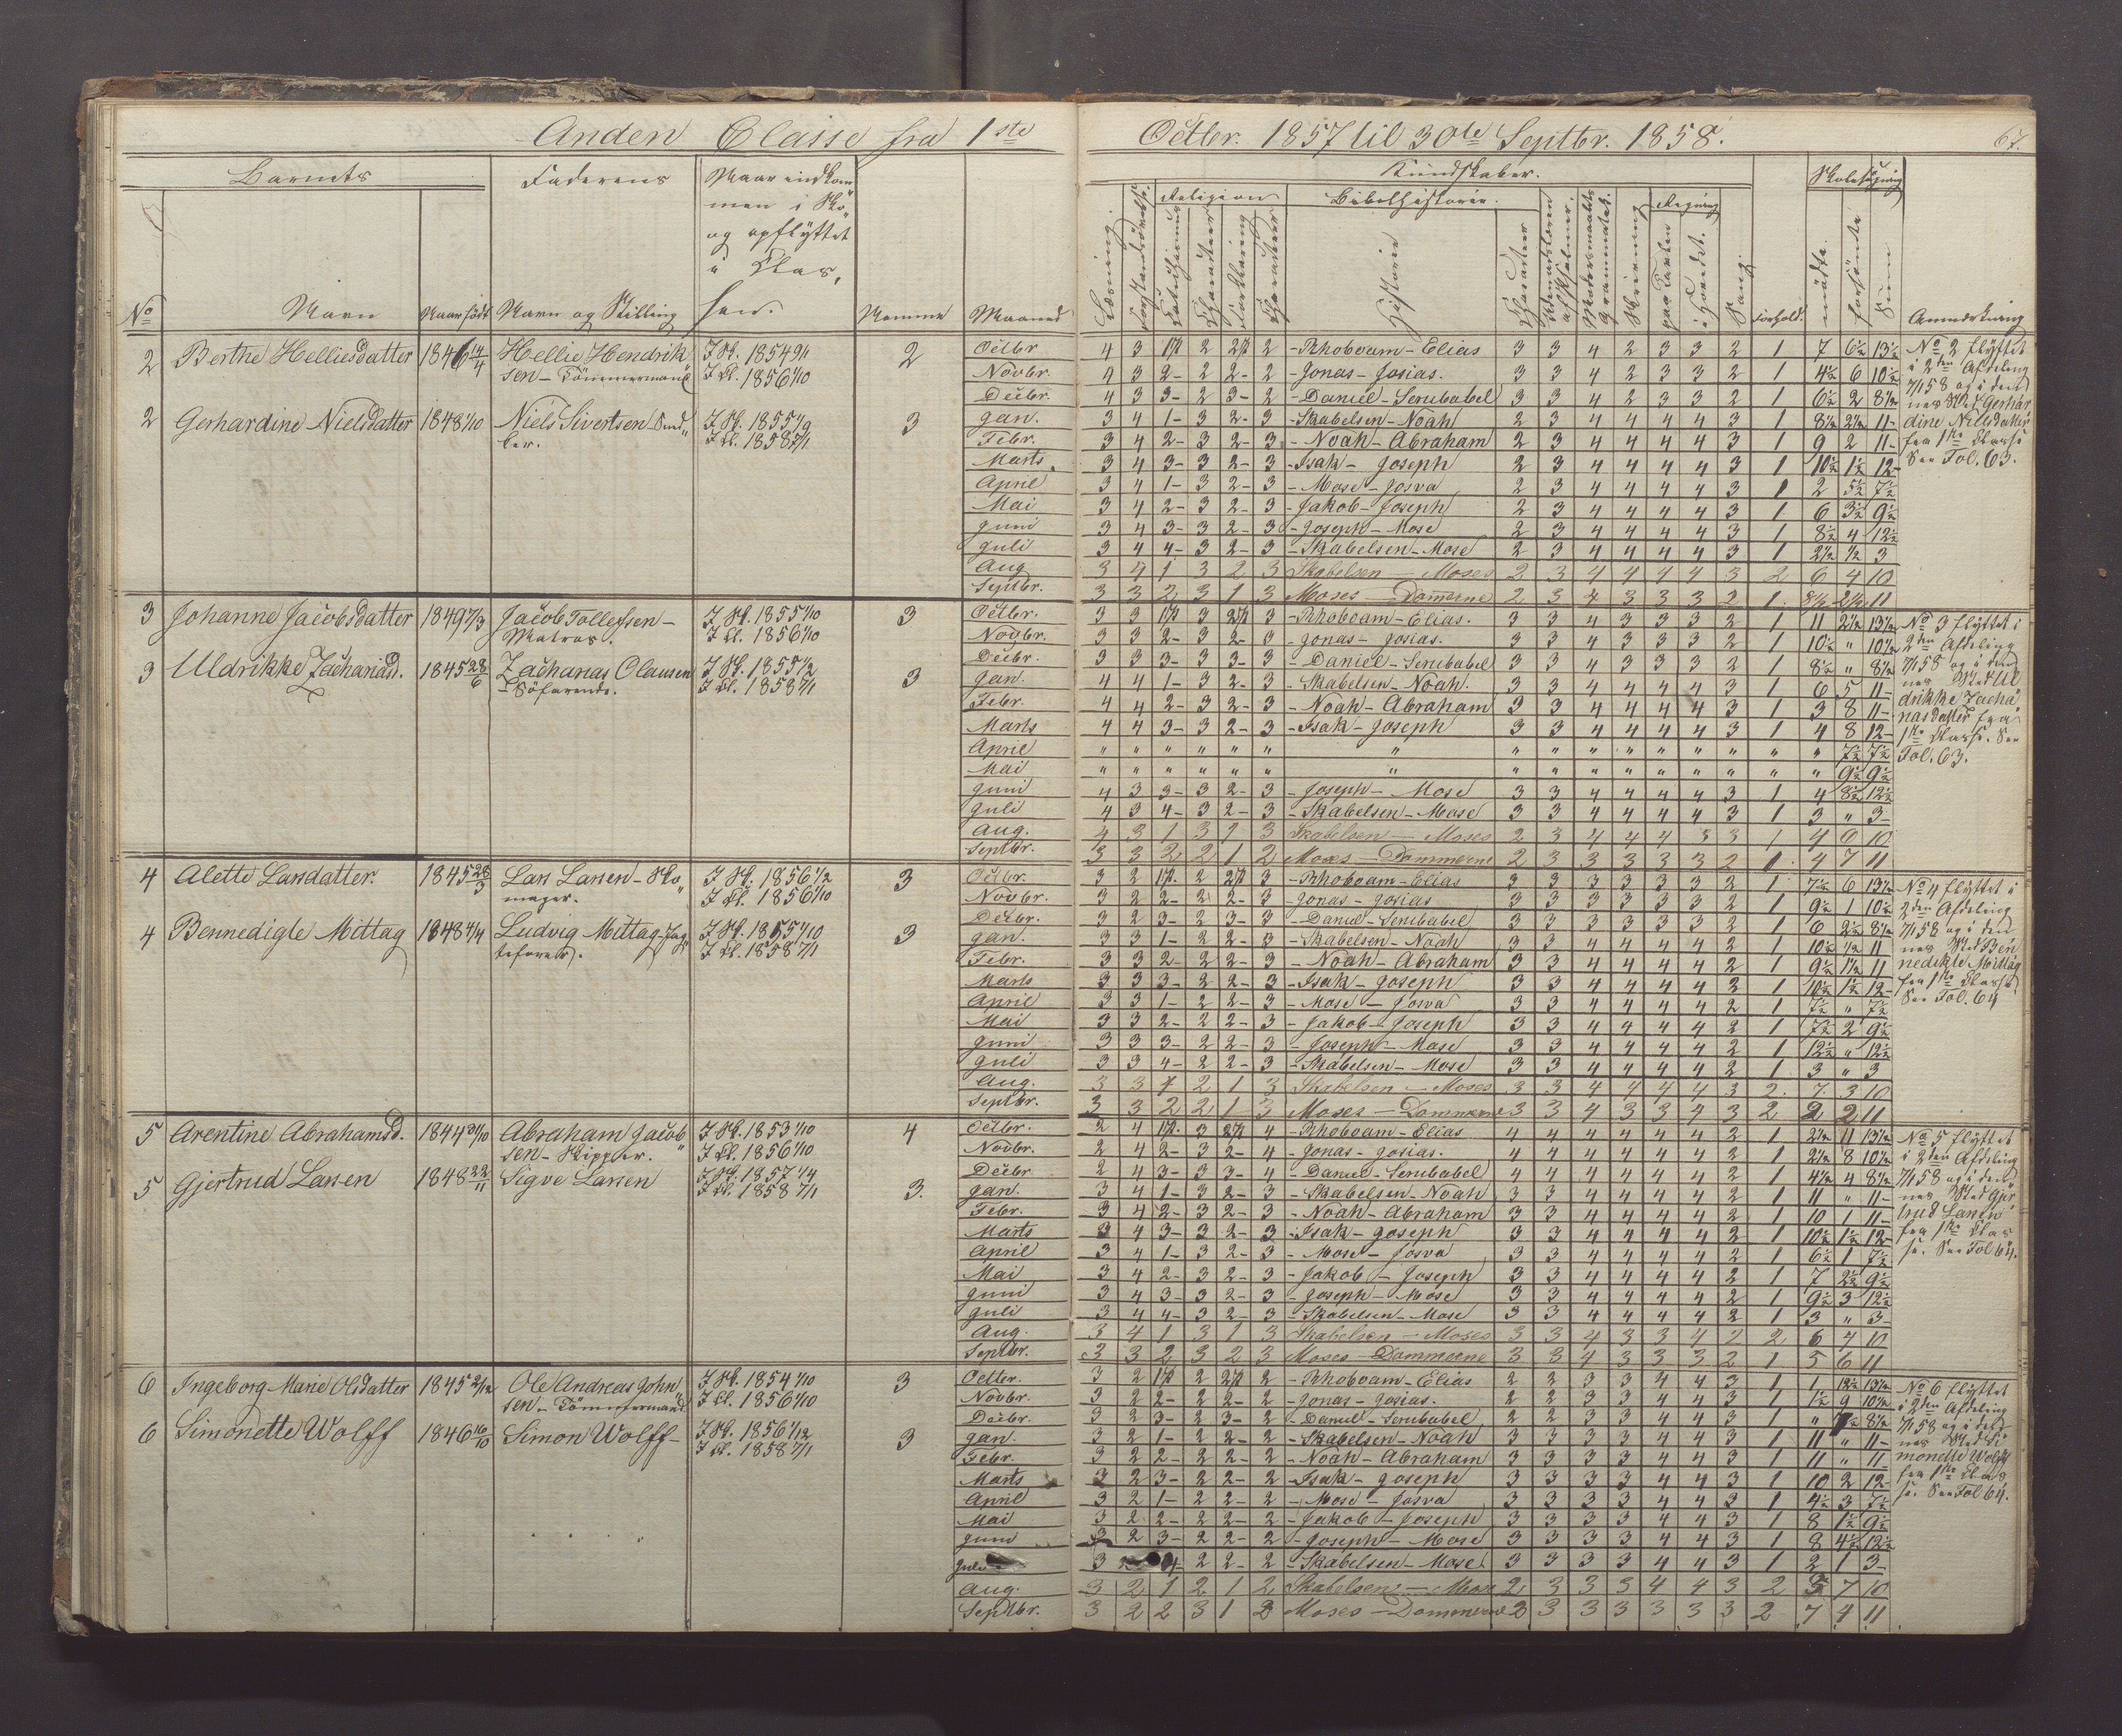 Anden Classe fra 1ste Octbr. 1857 til 30te Septbr. 1858.
67.
Barnets
Faderens
Naar indkom
men i Sko
og opflyttet
i Klas,
sen.
No
Navn
Naar født
Navn og Stilling
Nummer
Maaned
Kundskaber.
Religion
Bibelhistorie.
Regning
Skolesøgning
Læsning.
Historie
Skrivning
paa Tavlen
i Hovedet.
Sang.
Forhold.
mødte.
forsømte
Sum
Anmærkning
2 Berthe Helliesdatter 1846 14/4 Hellie Hendrik
sen - Tömmermand
I Sk. 1854
I Kl. 1856 1/10
2
2 Gerhardine Nielsdatter 1848 1/10 Niels Sivertsen
I Sk. 1855 1/9
I Kl. 1858 7/1
3
Octbr 4 3 1½ 2 2½ 2 - Rhoboam - Elias 3 3 4 2 3 3 2 1 7 6½ 13½
Novbr. 4 3 2 - 2 2 - 2 - Jonas - Josias. 3 3 4 2 3 3 2 1 4½ 6 10½
Decbr. 4 3 3 - 2 3 - 2 - Daniel - Serubabel 3 3 4 2 3 3 2 1 6½ 2 8½
Jan. 3 4 1 - 3 2 - 3 - Skabelsen - Noah 2 3 4 4 4 4 3 1 8½ 2½ 11 -
Febr. 3 4 2 - 3 2 - 3 - Noah - Abraham 2 3 4 4 4 4 3 1 9 2 11 -
Marts 3 4 3 - 3 2 - 3 - Isak - Joseph 2 3 4 4 4 4 3 1 10½ 1½ 12 -
April 3 4 1 - 3 2 - 3 - Mose - Josva 2 3 4 4 4 4 3 1 2 5½ 7½
Mai 3 4 2 - 3 2 - 3 - Jakob - Joseph 2 3 4 4 4 4 3 1 6 3½ 9½
Juni 3 4 3 - 3 2 - 3 - Joseph - Mose 2 3 4 4 4 4 3 1 8½ 4 12½
Juli 3 4 4 - 3 2 - 3 - Skabelsen - Mose 2 3 4 4 4 4 3 1 2½ ½ 3
Aug 3 4 1 3 2 3 Skabelsen - Moses 2 3 4 4 4 4 3 2 6 4 10
Septbr. 3 3 2 3 1 3 Moses - Dommerne 2 3 4 3 3 3 2 1 8½ 2½ 11
No 2 flyttet
i 2den Afdeling
7/1 58 og i den
nes Sted Gerhar
dine Nielsdatter
fra 1ste Klasse
See Fol. 63.
3 Johanne Jacobsdatter 1849 7/3 Jacob Tollefsen -
Matros.
I Sk. 1855 1/10
I Kl. 1856 1/10
3
3 Uldrikke Zachariasd. 1845 28/6 Zacharias Olausen
- Söfarende.
I Sk. 1855 1/2
I Kl. 1858 7/1
3
Octbr. 3 3 1½ 3 2½ 3 - Rhoboam - Elias. 3 3 4 3 3 3 2 1 11 2½ 13½
Novbr. 3 3 2 - 3 2 - 3 - Jonas - Josias. 3 3 4 3 3 3 2 1 10½ " 10½
Decbr. 3 3 3 - 3 3 - 3 - Daniel - Serubabel 3 3 4 3 3 3 2 1 8½ " 8½
Jan. 4 4 1 - 3 2 - 3 - Skabelsen - Noah. 3 3 4 4 4 4 3 1 6 5 11 -
Febr. 4 4 2 - 3 2 - 3 - Noah - Abraham 3 3 4 4 4 4 3 1 3 8 11 -
Marts 4 4 3 - 3 2 - 3 - Isak - Joseph 3 3 4 4 4 4 3 1 4 8 12 -
April " " " " " " " " " " " " " " " " 7½ 7½
Mai " " " " " " " " " " " " " " " " 9½ 9½
Juni 4 3 3 - 3 2 - 3 - Joseph - Mose 3 3 4 4 4 4 3 1 4 8½ 12½
Juli 4 3 4 - 3 2 - 3 - Skabelsen - Mose 3 3 4 4 4 4 3 1 3 " 3 -
Aug. 4 3 1 3 1 3 Skabelsen - Moses 2 3 4 4 4 3 3 1 4 6 10
Septbr. 3 3 2 2 1 2 Moses - Dommerne 2 3 3 3 3 3 2 1 4 7 11
No 3 flyttet i
2den Afdeling
7/1 58 og i den
nes Sted Ul
drikke Zacha
riasdatter fra
1ste Klasse. See
Fol. 63.
4 Alette Larsdatter. 1845 28/3 Lars Larsen - Sko
mager.
I Sk. 1856 1/2
I Kl. 1856 1/10
3
4 Bennedigte Mittag 1848 4/4 Ludvig Mittag
I Sk. 1855 1/10
I Kl. 1858 7/1
3
Octbr. 3 2 1½ 2 2½ 3 - Rhoboam - Elias 3 3 3 3 3 3 2 1 7½ 6 13½
Novbr. 3 2 2 - 2 2 - 3 - Jonas - Josias 3 3 3 3 3 3 2 1 9½ 1 10½
Decbr. 3 2 3 - 2 3 - 3 - Daniel - Serubabel 3 3 3 3 3 3 2 1 6 2½ 8½
Jan. 3 3 1 - 2 2 - 3 - Skabelsen - Noah 3 3 4 4 4 4 2 1 10½ ½ 11
Febr. 3 3 2 - 2 2 - 3 - Noah - Abraham 3 3 4 4 4 4 2 1 9½ 1½ 11
Marts 3 3 3 - 2 2 - 3 - Isak - Joseph 3 3 4 4 4 4 2 1 10½ 1½ 12 -
April 3 3 1 - 2 2 - 3 - Mose - Josva 3 3 4 4 4 4 2 1 7½ " 7½
Mai 3 3 2 - 2 2 - 3 - Jakob - Joseph 3 3 4 4 4 4 2 1 7½ 2 9½
Juni 3 3 3 - 2 2 - 3 - Joseph - Mose 3 3 4 4 4 4 2 1 12½ " 12½
Juli 3 3 4 - 2 2 - 3 - Skabelsen - Mose 3 3 4 4 4 4 2 1 3 " 3
Aug. 3 3 1 2 1 3 Skabelsen - Moses 3 3 4 4 4 4 3 2 7 3 10
Septbr. 3 3 2 2 1 3 Moses - Dommerne 3 3 4 3 3 4 3 2 2 2 11
No 4 flyttet i
2den Afdeling
7/1 58 og i den
nes Sted Ben
nedikte Mittag
fra 1ste Klasse
See Fol. 64
5 Arentine Abrahamsd. 1844 31/10 Abraham Jacob
sen - Skipper.
I Sk. 1853 1/10
I Kl. 1856 1/10
4
5 Gjertrud Larsen 1848 22/11 Sigve Larsen
I Sk. 1857 1/4
I Kl. 1858 7/1
3.
Octbr. 2 4 1½ 3 2½ 4 - Rhoboam - Elias 4 4 4 4 4 4 2 1 2½ 11 13½
Novbr. 2 4 2 - 3 2 - 4 - Jonas - Josias. 4 4 4 4 4 4 2 1 2½ 8 10½
Decbr 2 4 3 - 3 3 - 4 - Daniel - Serubabel 4 4 4 4 4 4 2 1 4½ 4 8½
Jan. 3 4 1 - 3 2 - 3 - Skabelsen - Noah 3 3 4 4 4 4 2 1 11 " 11 -
Febr. 3 4 2 - 3 2 - 3 - Noah - Abraham 3 3 4 4 4 4 2 1 10 1 11 -
Marts 3 4 3 - 3 2 - 3 - Isak - Joseph 3 3 4 4 4 4 2 1 10½ 1½ 12 -
April 3 4 1 - 3 2 - 3 - Mose - Josva 3 3 4 4 4 4 2 1 6½ 1 7½
Mai 3 4 2 - 3 2 - 3 - Jakob - Joseph 3 3 4 4 4 4 2 1 7 2½ 9½
Juni 3 4 3 - 3 2 - 3 - Joseph - Mose 3 3 4 4 4 4 2 1 9½ 3 12½
Juli 3 4 4 - 3 2 - 3 - Skabelsen - Mose 3 3 4 4 4 4 2 1 3 " 3 -
Aug. 3 4 1 3 1 3 Skabelsen - Moses 3 3 4 3 3 4 2 2 6 4 10
Septbr. 3 3 2 3 2 3 Moses - Dommerne 3 3 4 3 3 3 2 1 5 6 11
No 5 flyttet
i 2den Afdeling
7/1 58 og i den
nes Sted Gjer
trud Larsen
fra 1ste Klas
se. See Fol 64.
6 Ingeborg Marie Olsdatter 1845 Ole Andreas John
sen - Tömmermand
I Sk. 1854 1/10
I Kl. 1856 1/10
3
6 Simonette Wolff 1846 16/10 Simon Wolff -
I Sk. 1856 1/12
I Kl. 1858 7/1
3
Octbr. 3 2 1½ 2 2½ 2 - Rhoboam - Elias 2 2 3 3 4 4 3 1 1 12½ 13½
Novbr. 3 2 2 - 2 2 - 2 - Jonas - Josias. 2 2 3 3 4 4 3 1 1½ 9 10½
Decbr. 3 2 3 - 2 3 - 2 - Daniel - Serubabel 2 2 3 3 4 4 3 1 " 8½
Jan. 3 2 1 - 2 2 - 2 - Skabelsen - Noah 3 3 3 3 4 4 3 1 11 " 11 -
Febr. 3 2 2 - 2 2 - 2 - Noah - Abraham 3 3 3 3 4 4 3 1 11 " 11
Marts 3 2 3 - 2 2 - 2 - Isak - Joseph 3 3 3 3 4 4 3 1 10 2 12 -
April 3 2 1 - 2 2 - 2 - Mose - Josva 3 3 3 3 4 4 3 1 4½ 3 7½
Mai 3 2 2 - 2 2 - 2 - Jakob - Joseph 3 3 3 3 4 4 3 1 8 1½ 9½
Juni 3 2 3 - 2 2 - 2 - Joseph - Mose 3 3 3 3 4 4 3 1 8 4½ 12½
Juli 3 2 4 - 2 2 - 2 - Skabelsen - Mose 3 3 3 3 4 4 3 1 2 1 3 -
Aug. 3 2 1 2 1 2 Skabelsen - Mose 2 3 3 3 4 4 3 2 3 7 10
Septbr. 3 2 2 3 1 2 Moses - Dommerne 3 3 3 3 3 3 3 2 7 4 11
No 6 flyttet
i 2den Afdeling
7/1 58 og i den
nes Sted Si
monette Wolff
fra 1ste Klas
se. See Fol 64.